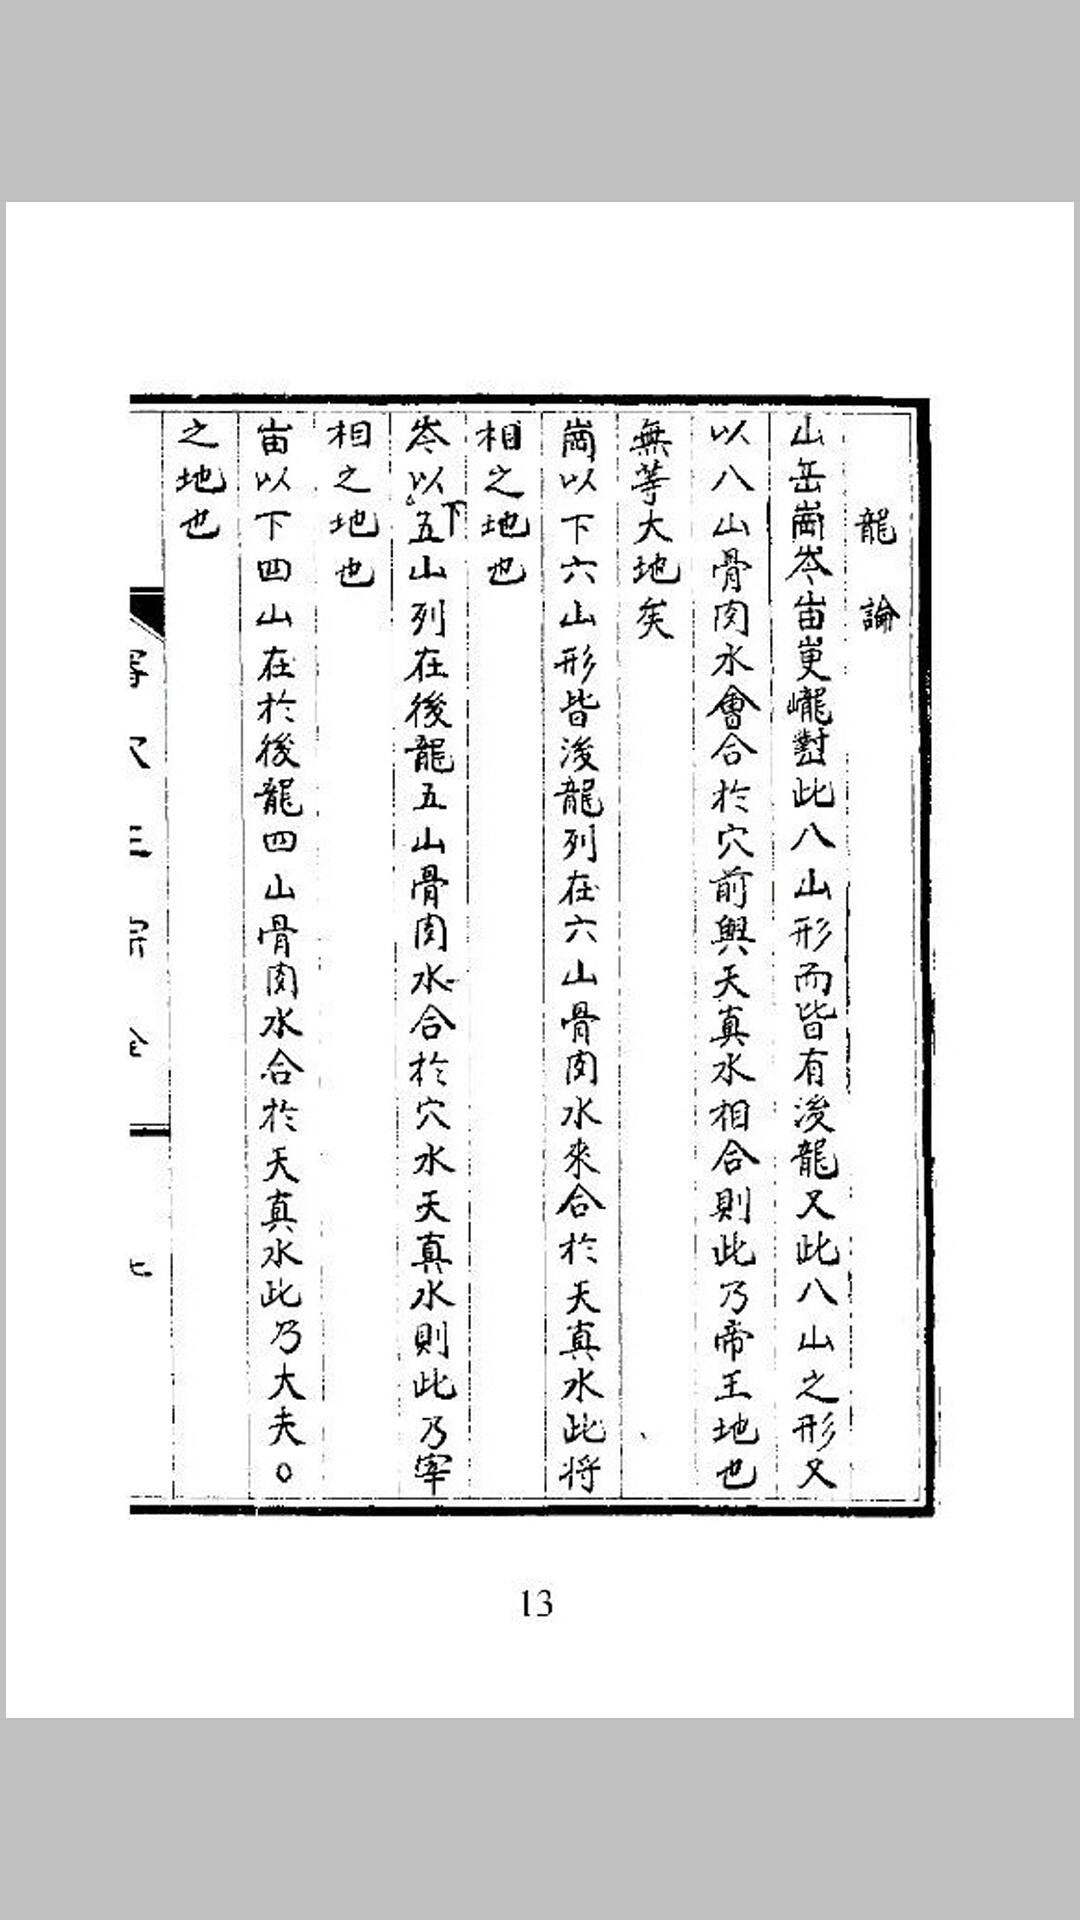 龍論
山岳崗岑峀峺巄對此八山形而皆有後龍又此八山之形又
以八山骨肉水會合於穴前與天真水相合則此乃帝王地也
無等大地矣
崗以下六山形皆後龍列在六山骨肉水來合於天真水此将
相之地也
岑以下五山列在後龍五山骨肉水合於穴水天真水則此乃宰
相之地也
峀以下四山在於後龍四山骨肉水合於天真水此乃大夫〇
之地也
13